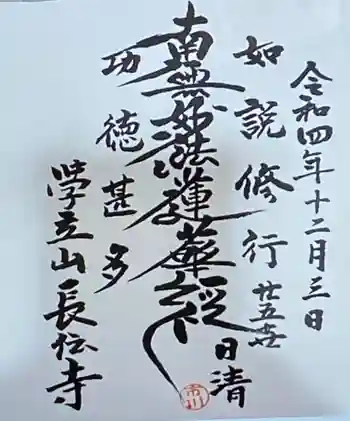 令和四年十二月三日
如説修行
廿五世
日清
南無妙法蓮華経
功徳甚多
學立山長伝寺
市川